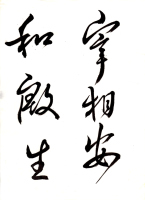 宰相安
和生